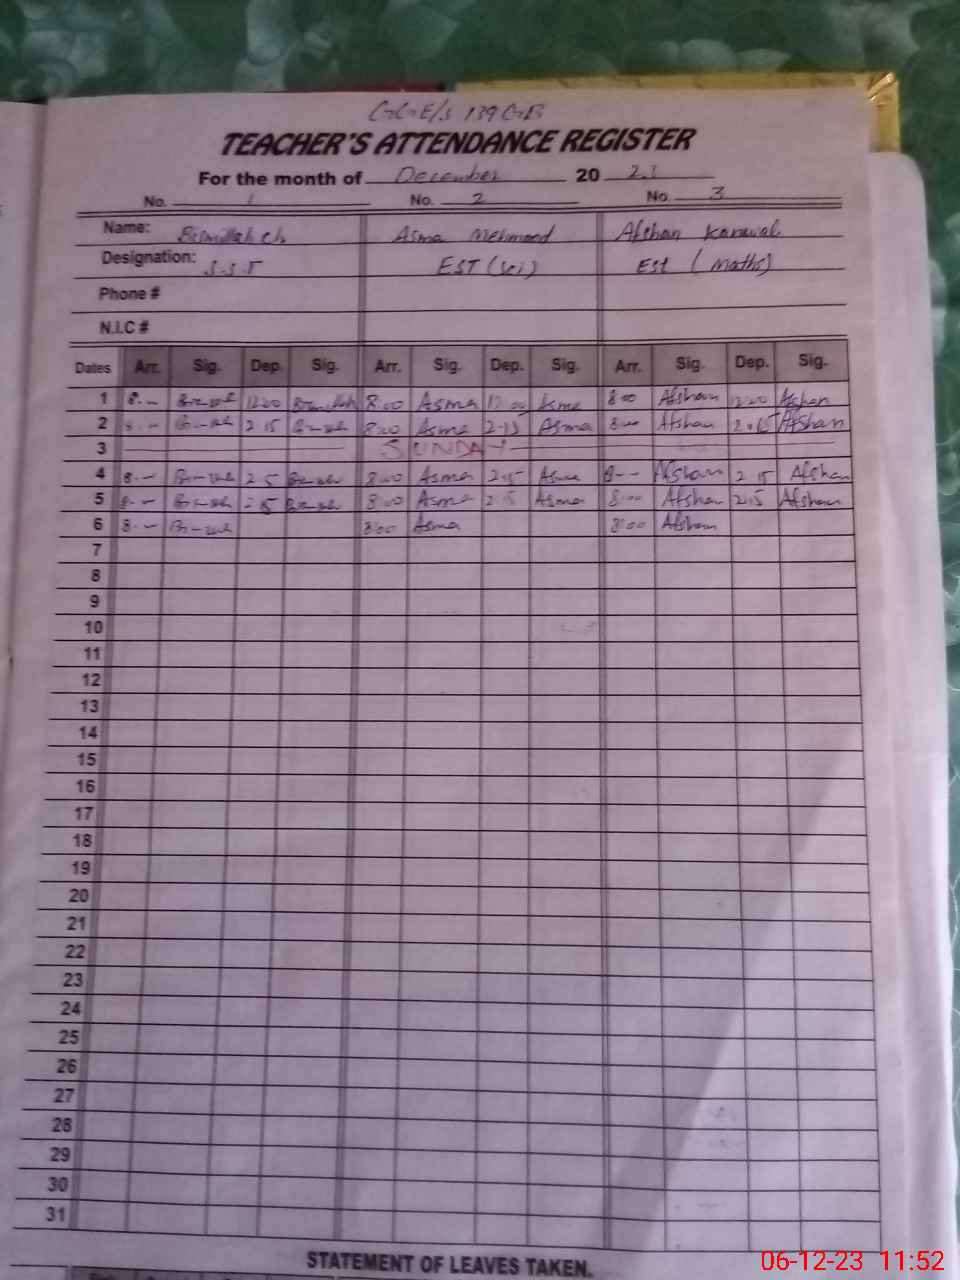 GGE/S 139 GB
TEACHER'S ATTENDANCE REGISTER
For the month of December 20 23
No. 1 No. 2 No 3
Name: Bismillah ch Asma Mehmood Afshan Kanwal
Designation: S.S.T EST (Sci) Est (Maths)
Phone #
N.I.C #
Dates Arr. Sig. Dep. Sig. Arr. Sig. Dep. Sig. Arr. Sig. Dep. Sig.
1 8.-- 12:00 Bismillah 8:00 Asma 12:00 Asma 8:00 Afshan 12:00 Afshan
2 8.-- 2 15 8:00 Asma 2-15 Asma 8:00 Afshan 2.15 Afshan
3 SUNDAY
4 8.-- 2 5 8:00 Asma 2:15 Asma 8-- Afshan 2.15 Afshan
5 8.-- -15 8:00 Asma 2:5 Asma 8:00 Afshan 2:15 Afshan
6 8.-- 8:00 Asma 8:00 Afshan
7
8
9
10
11
12
13
14
15
16
17
18
19
20
21
22
23
24
25
26
27
28
29
30
31
STATEMENT OF LEAVES TAKEN.
06-12-23 11:52